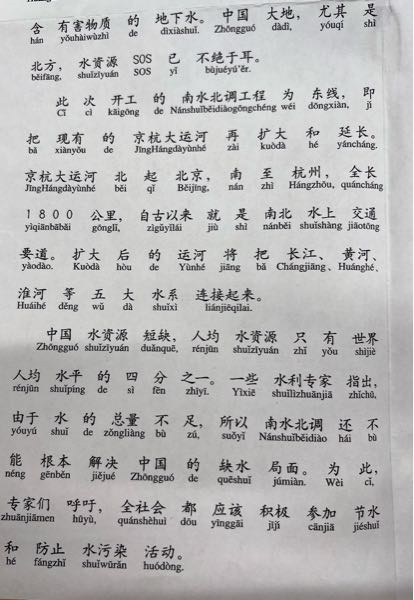 含 有害物质 的 地下水。 中国 大地, 尤其 是
hán yǒuhàiwùzhì de dìxiàshuǐ. Zhōngguó dàdì, yóuqí shì
北方, 水资源 SOS 已 不绝于耳。
běifāng, shuǐzīyuán SOS yǐ bùjuéyú'ěr.
此 次 开工 的 南水北调工程 为 东线, 即
Cǐ cì kāigōng de Nánshuǐběidiàogōngchéng wéi dōngxiàn, jí
把 现有 的 京杭大运河 再 扩大 和 延长。
bǎ xiànyǒu de JīngHángdàyùnhé zài kuòdà hé yáncháng.
京杭大运河 北 起 北京, 南 至 杭州, 全长
JīngHángdàyùnhé běi qǐ Běijīng, nán zhì Hángzhōu, quáncháng
1800 公里, 自古以来 就 是 南北 水上 交通
yìqiānbābǎi gōnglǐ, zìgǔyǐlái jiù shì nánběi shuǐshàng jiāotōng
要道。 扩大 后 的 运河 将 把 长江、 黄河、
yàodào. Kuòdà hòu de Yùnhé jiāng bǎ Chángjiāng、 Huánghé、
淮河 等 五 大 水系 连接起来。
Huáihé děng wǔ dà shuǐxì liánjiēqǐlai.
中国 水资源 短缺, 人均 水资源 只 有 世界
Zhōngguó shuǐzīyuán duǎnquē, rénjūn shuǐzīyuán zhǐ yǒu shìjiè
人均 水平 的 四 分 之一。 一些 水利专家 指出,
rénjūn shuǐpíng de sì fēn zhīyī. Yìxiē shuǐlìzhuānjiā zhǐchū,
由于 水 的 总量 不 足, 所以 南水北调 还 不
yóuyú shuǐ de zǒngliàng bù zú, suǒyǐ Nánshuǐběidiào hái bù
能 根本 解决 中国 的 缺水 局面。 为 此,
néng gēnběn jiějué Zhōngguó de quēshuǐ júmiàn. Wèi cǐ,
专家们 呼吁, 全社会 都 应该 积极 参加 节水
zhuānjiāmen hūyù, quánshèhuì dōu yīnggāi jījí cānjiā jiéshuǐ
和 防止 水污染 活动。
hé fángzhǐ shuǐwūrǎn huódòng.